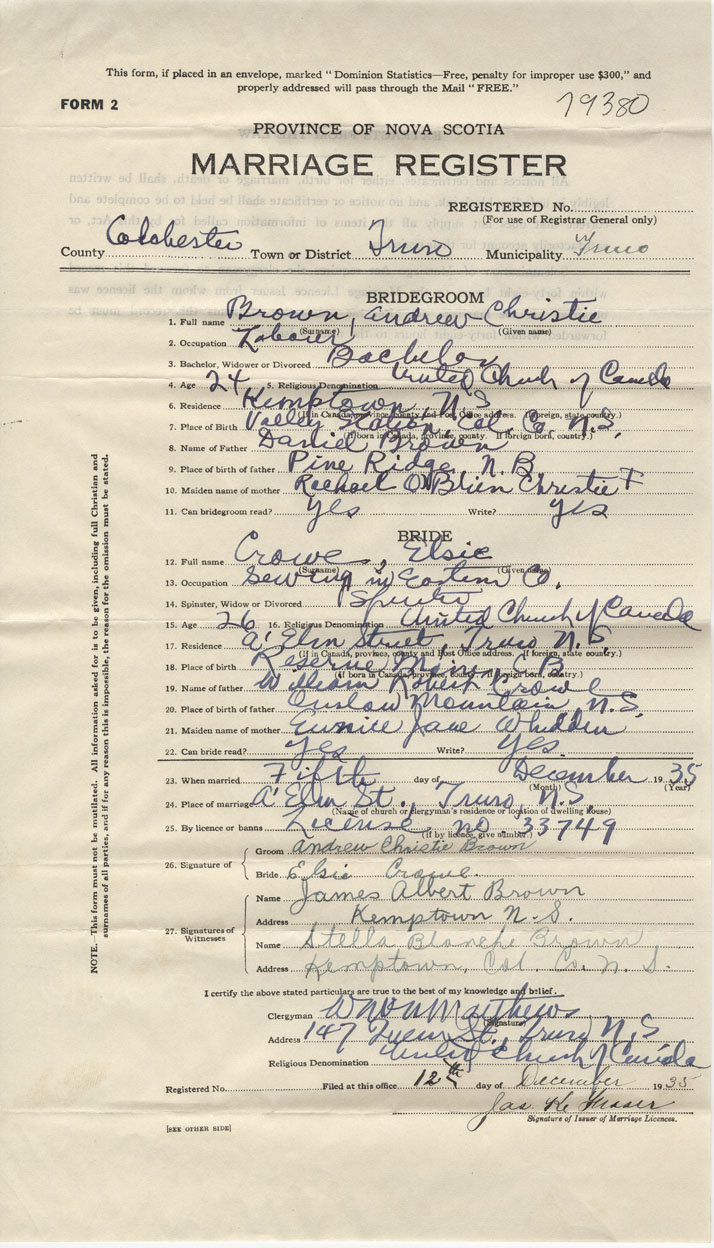 This form, if placed in an envelope, marked "Dominion Statistics—Free, penalty for improper use $300," and
properly addressed will pass through the Mail "FREE."
FORM 2
19380
PROVINCE OF NOVA SCOTIA
MARRIAGE REGISTER
REGISTERED No.
(For use of Registrar General only)
County Colchester Town or District Truro Municipality Truro
BRIDEGROOM
1. Full name Brown, Andrew Christie
(Surname) (Given name)
2. Occupation Laborer
3. Bachelor, Widower or Divorced Bachelor
4. Age 24 5. Religious Denomination United Church of Canada
6. Residence Kemptown, N.S.
(If in Canada, province, county and Post Office address. If foreign, state country.)
7. Place of Birth Valley Station Col. Co. N.S.
(If born in Canada, province, county. If foreign born, country.)
8. Name of Father Daniel Brown
9. Place of birth of father Pine Ridge, N.B.
10. Maiden name of mother Rachael O'Brien Christie
11. Can bridegroom read? Yes Write? Yes
BRIDE
12. Full name Crowe, Elsie
(Surname) (Given name)
13. Occupation Sewing in Eastern Co.
14. Spinster, Widow or Divorced Spinster
15. Age 26 16. Religious Denomination United Church of Canada
17. Residence Elm Street, Truro N.S.
(If in Canada, province, county and Post Office address. If foreign, state country.)
18. Place of birth Reserve Mines C.B.
(If born in Canada, province, county. If foreign born, country.)
19. Name of father William Robert Crowe
20. Place of birth of father Onslow Mountain, N.S.
21. Maiden name of mother Eunice Jane Whidden
22. Can bride read? Yes Write? Yes
23. When married Fifth day of December 1935
(Month) (Year)
24. Place of marriage Elm St., Truro, N.S
(Name of church or clergyman's residence or location of dwelling house)
25. By licence or banns License no 33749
(If by licence, give number)
26. Signature of
Groom Andrew Christie Brown
Bride Elsie Crowe.
27. Signatures of Witnesses
Name James Albert Brown
Address Kemptown N.S.
Name Stella Blanche Brown
Address Kemptown, Col. Co. N.S.
I certify the above stated particulars are true to the best of my knowledge and belief.
Clergyman Matthews
(Signature)
Address 147 Queen St., Truro, N.S
Religious Denomination United Church of Canada
Registered No. Filed at this office 12th day of December 1935
Jas. K. Fraser
Signature of Issuer of Marriage Licences.
[SEE OTHER SIDE]
NOTE.—This form must not be mutilated. All information asked for is to be given, including full Christian and
surnames of all parties, and if for any reason this is impossible, the reason for the omission must be stated.